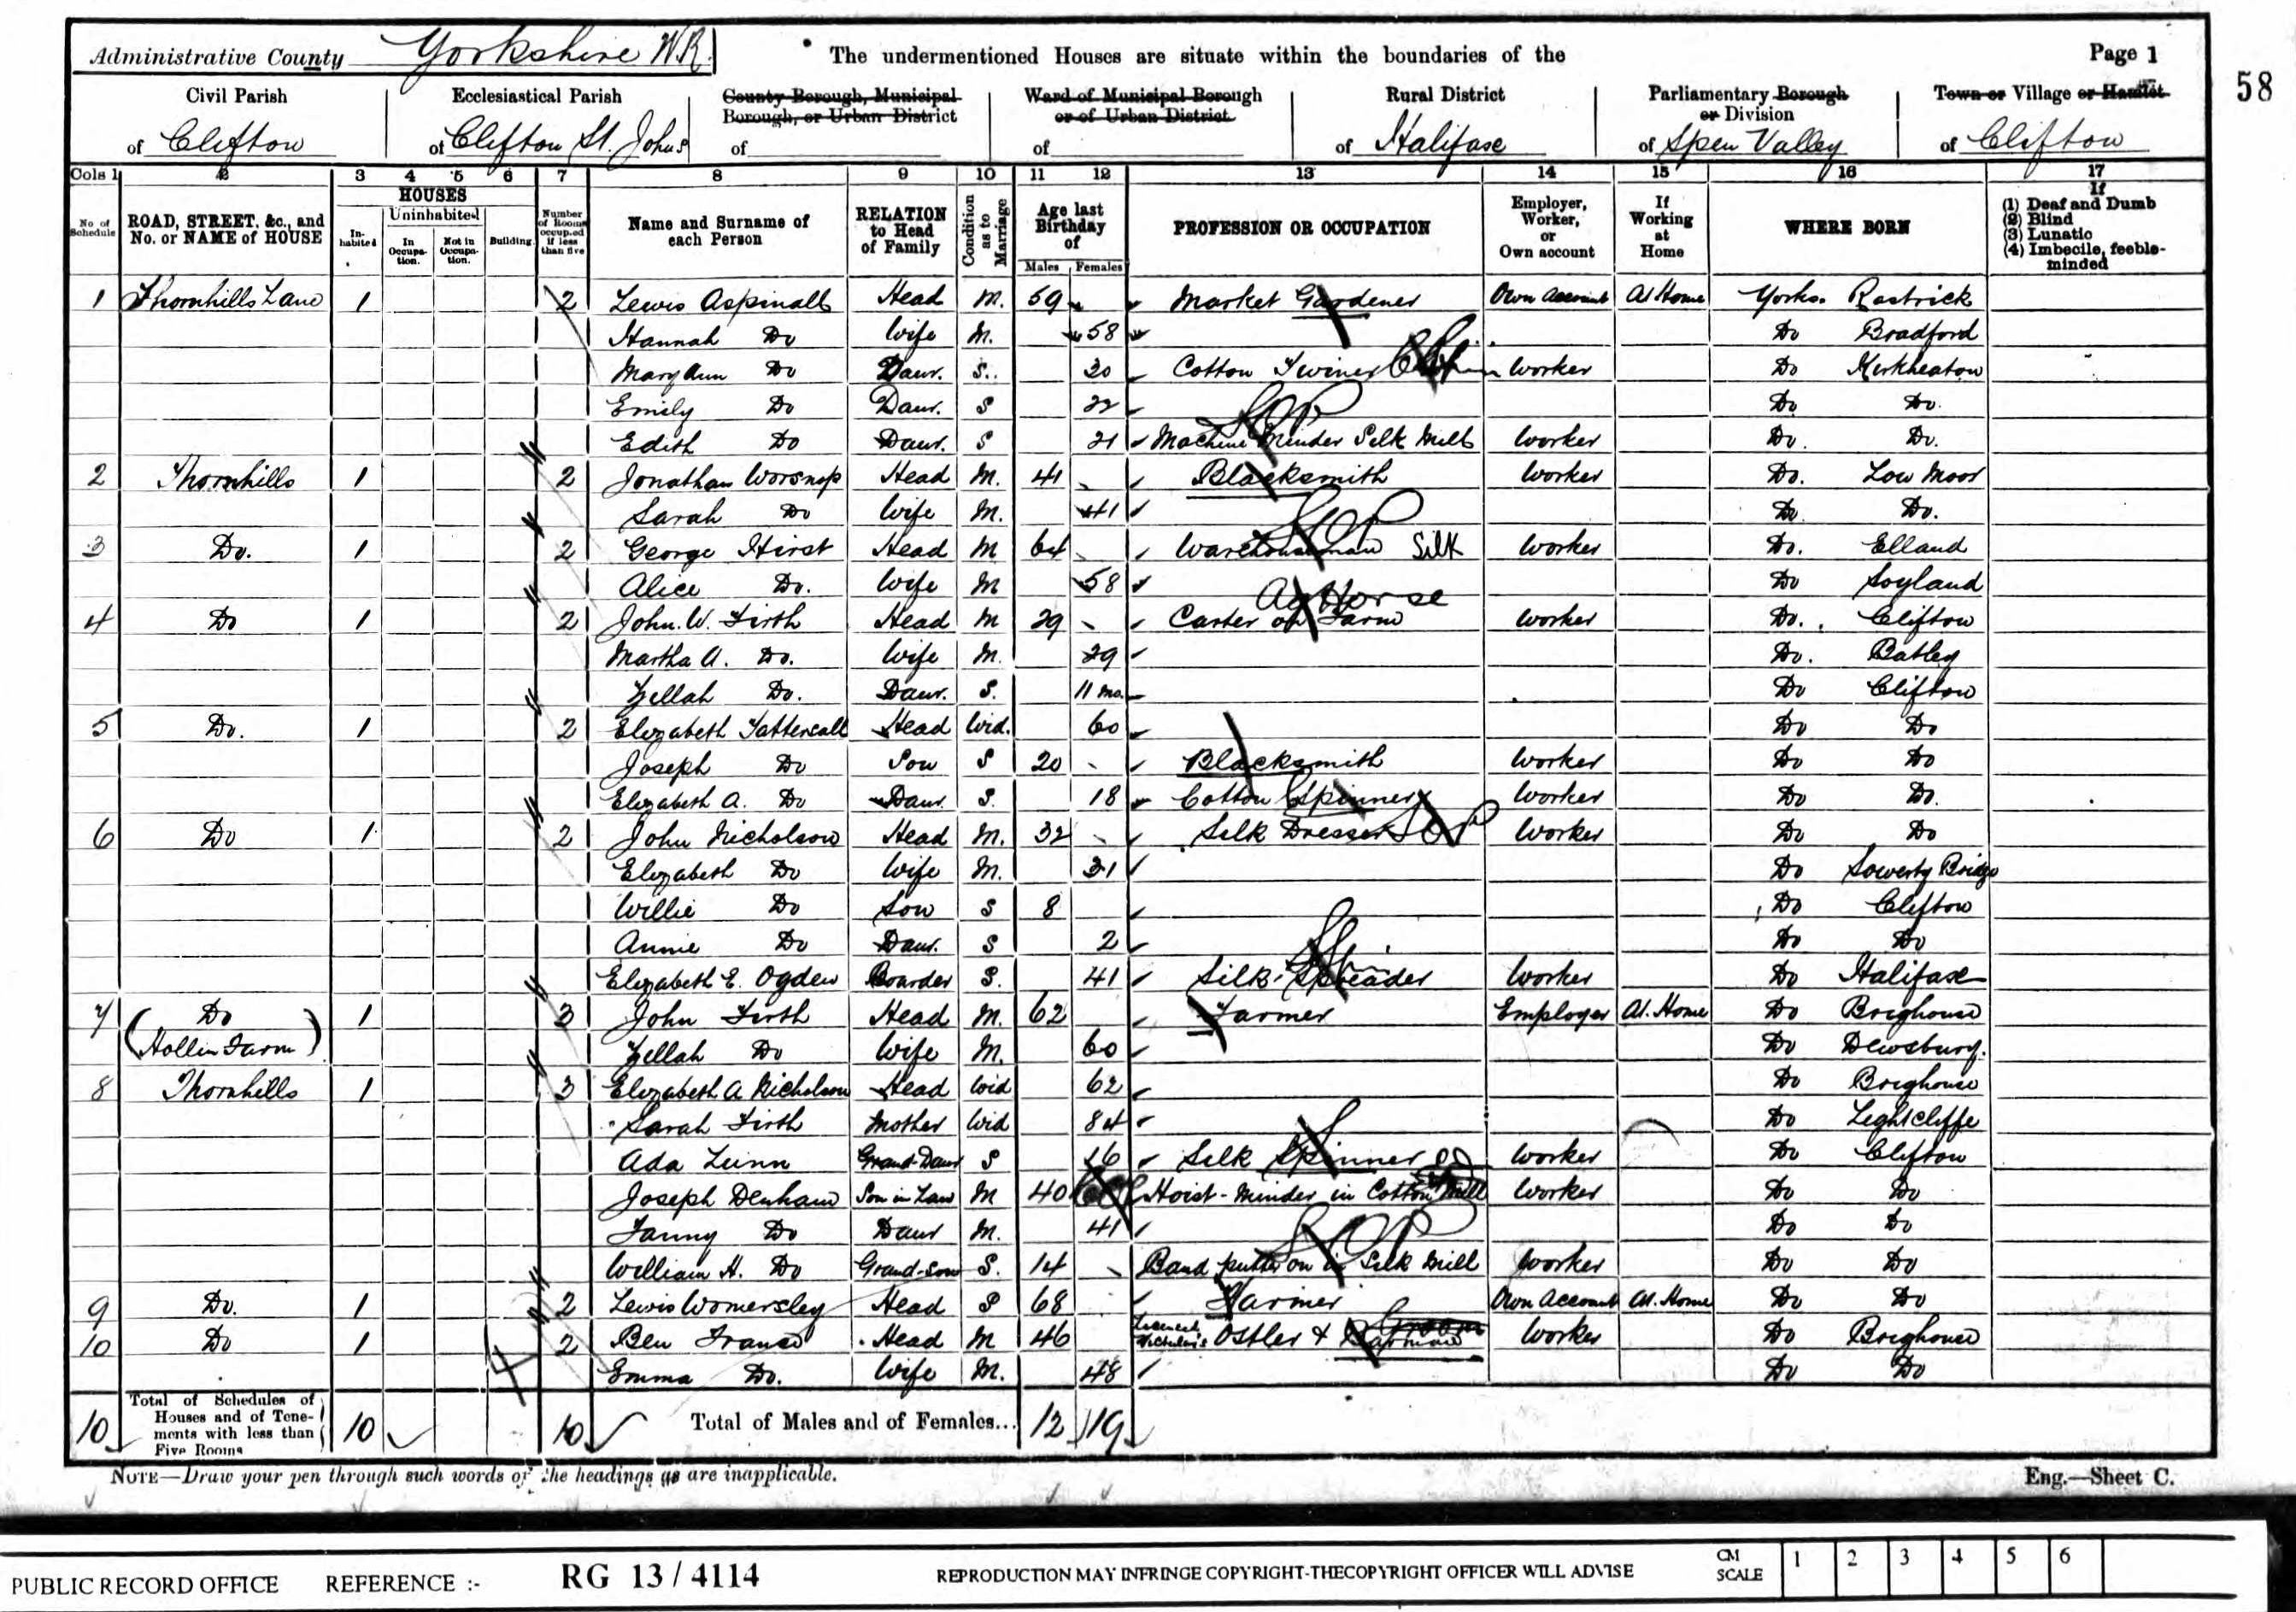 Administrative County Yorkshire W.R. The undermentioned Houses are situate within the boundaries of the Page 1
58
Civil Parish Ecclesiastical Parish County Borough, Municipal Borough, or Urban District Ward of Municipal Borough or of Urban District Rural District Parliamentary Borough or Division Town or Village or Hamlet
of Clifton of Clifton St. Johns of of of Halifax of Spen Valley of Clifton
Cols 1 2 3 4 5 6 7 8 9 10 11 12 13 14 15 16 17
No. of Schedule ROAD, STREET, &c., and No. or NAME of HOUSE HOUSES Inhabited Uninhabited In Occupation. Not in Occupation. Building. Number of Rooms occupied if less than five Name and Surname of each Person RELATION to Head of Family Condition as to Marriage Age last Birthday of Males Females PROFESSION OR OCCUPATION Employer, Worker, or Own account If Working at Home WHERE BORN If (1) Deaf and Dumb (2) Blind (3) Lunatic (4) Imbecile, feeble-minded
1 Thornhills Lane 1 2 Lewis Aspinall Head M. 59 Market Gardener Own Account At Home Yorks. Rastrick
Hannah Do Wife M. 58 Do Bradford
Mary Ann Do Daur. S. 30 Cotton Twiner Worker Do Kirkheaton
Emily Do Daur. S 22 Do Do.
Edith Do Daur. S 21 Machine Minder Silk Mill Worker Do. Do.
2 Thornhills 1 2 Jonathan Worsnop Head M. 41 Blacksmith Worker Do. Low Moor
Sarah Do Wife M. 41 Do Do.
3 Do. 1 2 George Hirst Head M 64 Warehouseman Silk Worker Do. Elland
Alice Do. Wife M 58 Do Soyland
Ag Horse
4 Do 1 2 John. W. Firth Head M 29 Carter on Farm Worker Do. Clifton
Martha A. Do. Wife M. 29 Do. Batley
Zillah Do. Daur. S. 11 mo. Do Clifton
5 Do. 1 2 Elizabeth Tattersall Head Wid. 60 Do Do
Joseph Do Son S 20 Blacksmith Worker Do Do
Elizabeth A. Do Daur. S. 18 Cotton Spinner Worker Do Do.
6 Do 1 2 John Nicholson Head M. 32 Silk Dresser Worker Do Do
Elizabeth Do Wife M. 31 Do Sowerby Bridge
Willie Do Son S 8 Do Clifton
Annie Do Daur. S 2 Do Do
Elizabeth E. Ogden Boarder S. 41 Silk Spreader Worker Do Halifax
7 Do (Hollin Farm) 1 3 John Firth Head M. 62 Farmer Employer At. Home Do Brighouse
Zillah Do Wife M. 60 Do Dewsbury.
8 Thornhills 1 3 Elizabeth A. Nicholson Head Wid 62 Do Brighouse
Sarah Firth Mother Wid 84 Do Lightcliffe
Ada Lunn Grand-Daur S 16 Silk Spinner Worker Do Clifton
Joseph Denham Son in Law M 40 Hoist-Minder in Cotton Mill Worker Do Do
Fanny Do Daur M. 41 Do Do
William H. Do Grand-Son S. 14 Band putter on in Silk Mill Worker Do Do
9 Do. 1 2 Lewis Womersley Head S 68 Farmer Own Account At. Home Do Do
10 Do 1 2 Ben France Head M 46 Ostler & Worker Do Brighouse
Emma Do. Wife M. 48 Do Do
10 Total of Schedules of Houses and of Tenements with less than Five Rooms 10 10 Total of Males and of Females... 12 19
NOTE—Draw your pen through such words of the headings as are inapplicable. Eng.—Sheet C.
PUBLIC RECORD OFFICE REFERENCE :- RG 13 / 4114 REPRODUCTION MAY INFRINGE COPYRIGHT-THE COPYRIGHT OFFICER WILL ADVISE CM SCALE 1 2 3 4 5 6